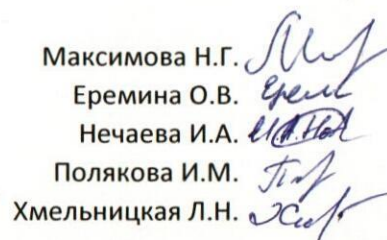 Максимова Н.Г.
Еремина О.В.
Нечаева И.А.
Полякова И.М.
Хмельницкая Л.Н.